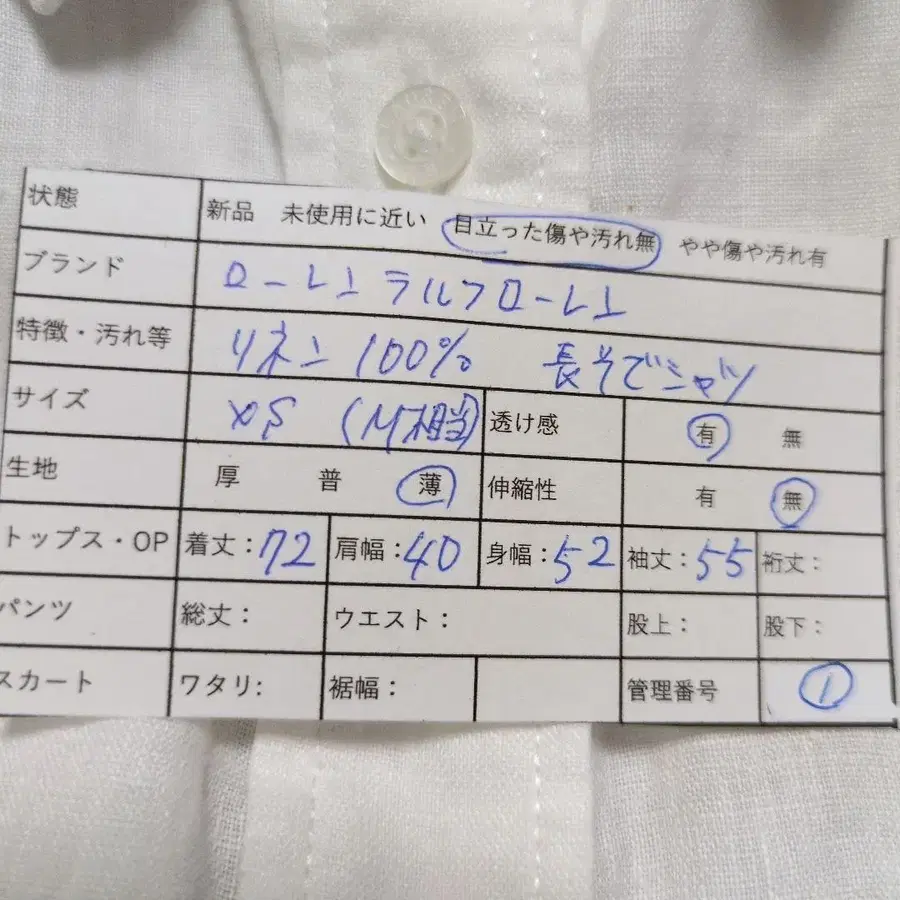 状態 新品 未使用に近い 目立った傷や汚れ無 やや傷や汚れ有
ブランド ローレンラルフローレン
特徴・汚れ等 リネン100% 長そでシャツ
サイズ XS (M相当) 透け感 有 無
生地 厚 普 薄 伸縮性 有 無
トップス・OP 着丈:72 肩幅:40 身幅:52 袖丈:55 裄丈:
パンツ 総丈: ウエスト: 股上: 股下:
スカート ワタリ: 裾幅: 管理番号 1